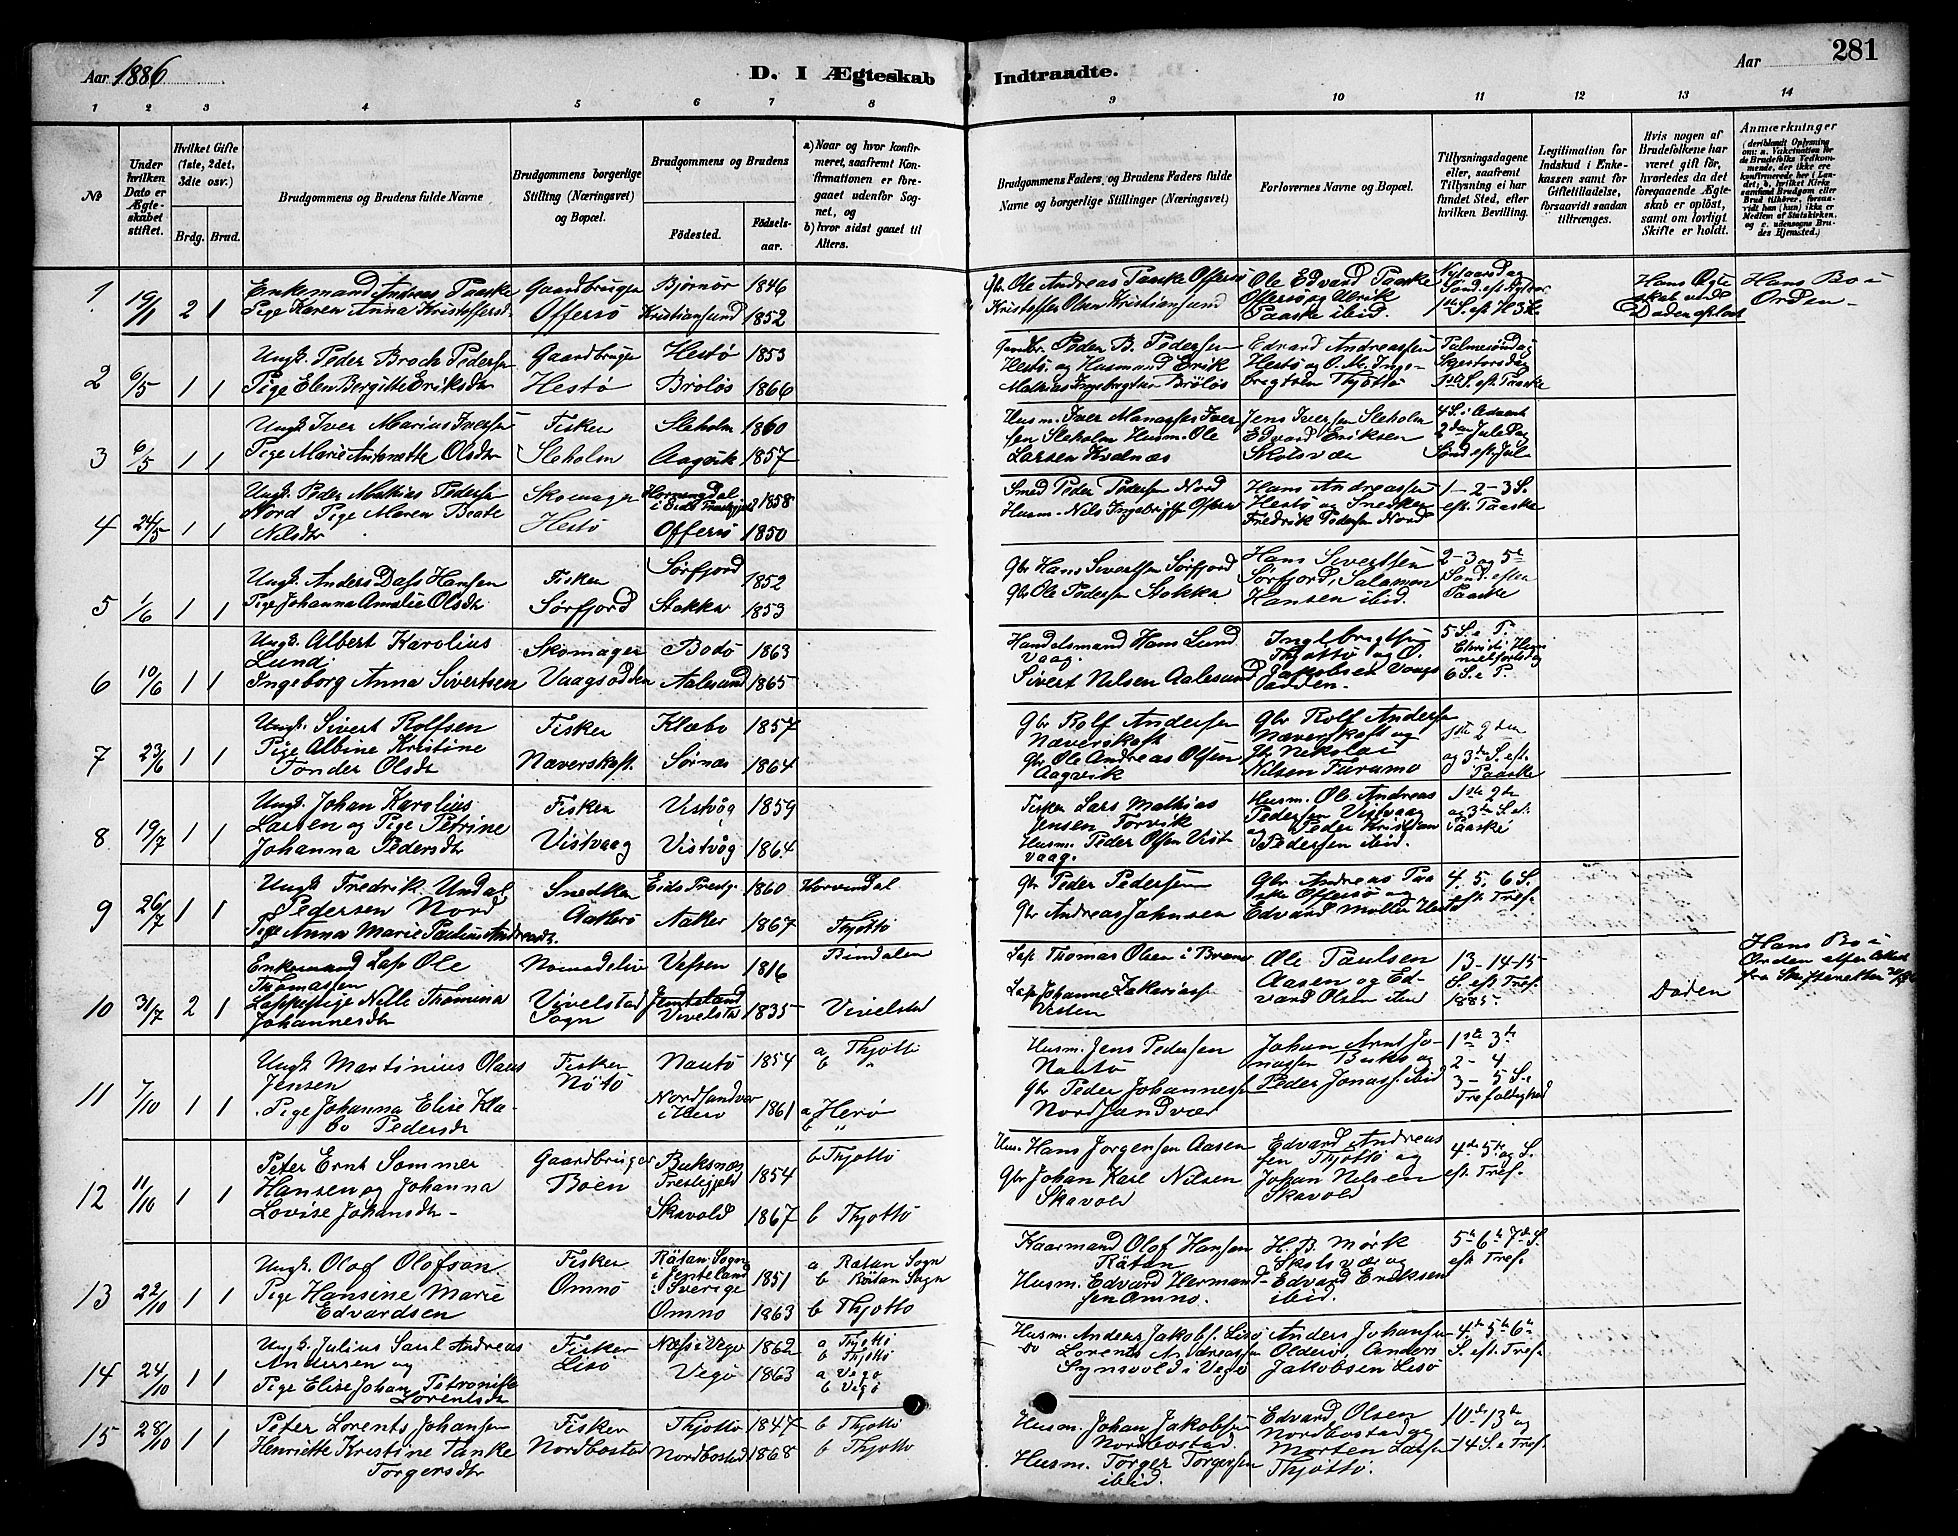 Aar 1886
D. I Ægteskab Indtraadte.
Aar
281
1 2 3 4 5 6 7 8 9 10 11 12 13 14
№
Under hvilken Dato er Ægteskabet stiftet.
Hvilket Gifte (1ste, 2det, 3die osv.)
Brdg. Brud.
Brudgommens og Brudens fulde Navne
Brudgommens borgerlige Stilling (Næringsvei) og Bopæl.
Brudgommens og Brudens
Fødested.
Fødselsaar.
a) Naar og hvor konfirmeret, saafremt Konfirmationen er foregaaet udenfor Sognet, og
b) hvor sidst gaaet til Alters.
Brudgommens Faders og Brudens Faders fulde Navne og borgerlige Stillinger (Næringsvei)
Forlovernes Navne og Bopæl.
Tillysningsdagene eller, saafremt Tillysning ei har fundet Sted, efter hvilken Bevilling.
Legitimation for Indskud i Enkekassen samt for Giftetilladelse, forsaavidt saadan tiltrænges.
Hvis nogen af Brudefolkene har været gift før, hvorledes da det foregaaende Ægteskab er opløst, samt om lovligt Skifte er holdt.
Anmærkninger
1 19/1 2 1
Enkemand Andreas Paaske
Pige Karen Anna Kristoffersd.
Gaardbruger
Offersö
Bjørnør 1846
Kristiansund 1852
Gbr. Ole Andreas Paaske Offersö
Kristoffer Olsen Kristiansund
Ole Edvard Paaske
Offersö og Ulrik
Paaske ibid.
Nytaarsdag
Hans Ægte
skab ved
Döden opløst
Hans Bo i
Orden
2 6/5 1 1
Ungk. Peder Broch Pedersen
Pige Elen Bergitte Eriksdtr
Gaardbruger
Hestö
Hestö 1853
Bröløs 1866
Gaardbr. Peder B. Pedersen
Hestö, og Husmand Erik
Mathias Ingebrigtsen Bröløs
Edvard Andreassen
Hestö og O. M. Inge-
brigtsen Thjöttö
Palmesöndag
Skjærtorsdag
1ste S. eft. Paaske
3 6/5 1 1
Ungk. Iver Marius Iversen
Pige Marie Antonette Olsdtr
Fisker
Sleholm
Sleholm 1860
Aagvik 1857
Husm. Iver Manasses Iver
sen Sleholm Husm. Ole
Larsen Kvalnæs
Jens Iversen Sleholm
Edvard Eriksen
Skolsvær
4 S. i Advent
2den Juledag
Sönd. eft. Jul
4 24/5 1 1
Ungk. Peder Mathias Pedersen
Nord Pige Maren Beate
Nilsdtr
Skomager
Hestö
1858
Offersö 1850
Smed Peder Pedersen Nord
Husm. Nils Ingebrigts. Offersö
Hans Andreassen
Hestö og Snedker
Fredrik Pedersen Nord
1 - 2 - 3 S.
eft. Paaske
5 1/6 1 1
Ungk. Anders Dass Hansen
Pige Johanna Amalie Olsdtr
Fisker
Sörfjord
Sörfjord 1852
Stokka 1853
Gbr Hans Sivertsen Sörfjord
Gbr Ole Pedersen Stokka
Hans Sivertsen
Sörfjord, Salamon
Hansen ibid.
2 - 3 og 5te
Sönd. efter
Paaske
6 10/6 1 1
Ungk. Albert Karolius
Lund
Ingeborg Anna Sivertsen
Skomager
Vaagsodden
Bodö 1863
Aalesund 1865
Handelsmand Hans Lund
Vaag.
Sivert Nilsen Aalesund
Ingebrigtsen
Thjöttö og O.
Jakobsen Vaags
odden.
5 S. e. P.
Christi Him
melfartsdag
6 S. e. P.
7 23/6 1 1
Ungk. Sivert Rolfsen
Pige Albine Kristine
Tonder Olsdtr
Fisker
Næverskoft.
Klæbo 1857
Sörnæs 1864
Gbr Rolf Andersen
Næverskoft
Gbr Ole Andreas Olsen
Aagvik
Gbr Rolf Andersen
Næverskoft og
Nikolai
Nilsen Furumo
1ste 2den
og 3die S. eft.
Paaske
8 19/7 1 1
Ungk. Johan Karolius
Larsen og Pige Petrine
Johanna Pedersdtr
Fisker
Vistvaag
Vistvåg 1859
Vistvåg 1864
Fisker Lars Mathias
Jensen Forvik
Husm. Peder Olsen Vist
vaag.
Husm. Ole Andreas
Pedersen Vistvaag
og Peder Kristian
Pedersen ibid.
1ste 2den
og 3die S. e.
Paaske
9 26/7 1 1
Ungk Fredrik Undal
Pedersen Nord
Pige Anna Marie Pauline Andreasdtr.
Snedker
Eids Prestg. 1860
Aaker 1867
Horvindal
Thjöttö
Gbr Peder Pedersen
Gbr Andreas Johnsen
Gbr. Andreas Paa
ske Offersö og
Edvard Möller Hestö
4. 5. 6 S.
eft Tref.
10 31/7 2 1
Enkemand Lap Ole
Thomassen
Lappepige Nelle Thomina
Johannesdtr
Nomadeliv
Vivelstad
Sogn
Vefsen 1816
Jemteland
Vivelstad 1835
Bindalen
Vivelstad
Lap Thomas Olsen i
Lap Johannes Zakariassen
Vesten
Ole Paulsen
Aasen og Ed-
vard Olsen
13 - 14 - 15
S. eft Tref.
1885
Döden
Hans Bo i
Orden
11 7/10 1 1
Ungk Martinius Olaus
Jensen
Pige Johanna Elise Kla-
bo Pedersdtr
Fisker
Nötö
Nautö 1854
Nordsandvær
i Herö 1861
a Thjöttö
b "
a Herö
b "
Husm. Jens Pedersen
Nautö
Gbr Peder Johannessen
Nordsandvær
Johan Arnt Jo-
nassen Buks og
Peder Jonass. ibid
1ste 3die
2 - 4
3 - 5 S. e
Trefoldighed
12 11/10 1 1
Peter Ernt Sommer
Hansen og Johanna
Lovise Johansdtr
Gaardbruger
Böen
Buksnæs
Prestegjeld 1854
Skavold 1867
b Thjöttö
b Thjöttö
Hus. Hans Jorgensen Aasen
Gbr Johan Karl Nilsen
Skavold
Edvard Andreas
sen Thjöttö og
Johan Nilsen
Skavold
4de 5te og S.
eft Tref.
13 22/10 1 1
Ungk. Olof Olofson
Pige Hansine Marie
Edvardsen
Fisker
Omnö
Rätan Sogn
i Jemteland
i Sverige 1851
Omnö 1863
a Rätan Sogn
b Rätan Sogn
b Thjöttö
Kaarmand Olof Hansen
Rätan
Husm. Edvard Hermand-
sen Omnö.
H. B. Mörk
Skolsvær og
Edvard Eriksen
ibid.
5te 6te 7de S.
eft Tref.
14 24/10 1 1
Ungk. Julius Saul Andreas
Andersen og
Pige Elise Johan Petronille
Lorentsdtr
Fisker
Lisö
Næss i Vego 1862
Vegö 1863
a Thjöttö
b Thjöttö
a Vegö
b Vegö
Husm. Anders Jakobs. Lisö
Do Lorents Andreassen
Synsvold i Vegö
Anders Johansen
Olderö, Anders
Jakobsen Lisö
4de 5te 6te
S. eft Tref.
15 28/10 1 1
Peter Lorents Johansen
Henriette Kristine Tanke
Torgersdtr
Fisker
Nordbostad
Thjöttö 1847
Nordbostad 1868
b Thjöttö
b Thjöttö
Husm. Johan Jakobsen
Nordbostad.
Husm. Torger Torgersen
ibid.
Edvard Olsen
Nordbostad og
Morten Larsen
Thjöttö.
10de 13de og
14 S. e Tref.